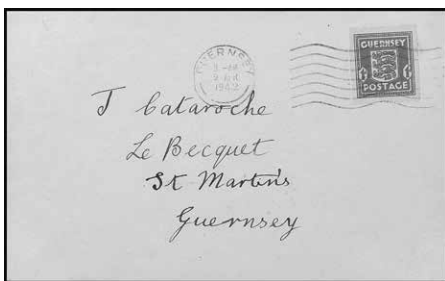 GUERNSEY
1942
GUERNSEY
POSTAGE
J Cataroche
Le Becquet
St Martins
Guernsey